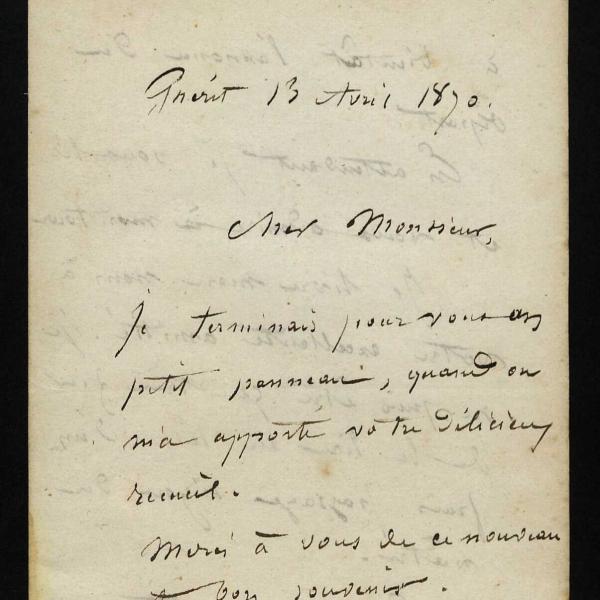 Guérit 13 Avril 1870.
Cher Monsieur,
je terminais pour vous un
petit panneau, quand on
m'a apporté votre délicieux
recueil.
Merci à vous de ce nouveau
et bon souvenir.